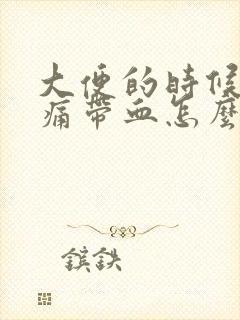 大便的時候
痛帶血怎麼
鎵鉄